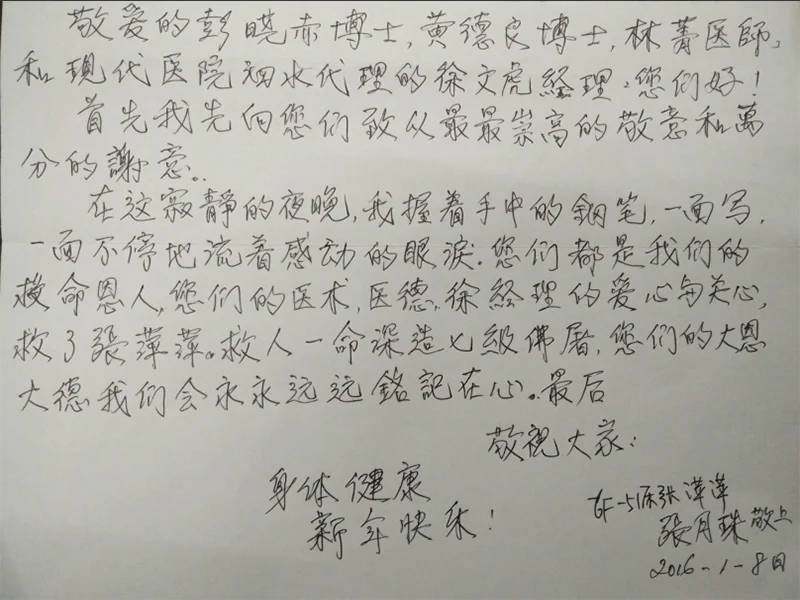 敬爱的彭晓赤博士,黄德良博士,林菁医師,
和现代医院泗水代理的徐文虎经理:您们好!
首先我先向您们致以最最崇高的敬意和萬
分的謝意。
在这寂靜的夜晚,我握着手中的鋼笔,一面写,
一面不停地流着感动的眼淚.您们都是我们的
救命恩人,您们的医术,医德,徐经理的爱心与关心,
救了張萍萍。救人一命深造七級佛屠,您们的大恩
大德我们会永永远远銘記在心。最后
敬祝大家:
身体健康
新年快乐!
6F-51床张萍萍
張月珠敬上
2016-1-8日